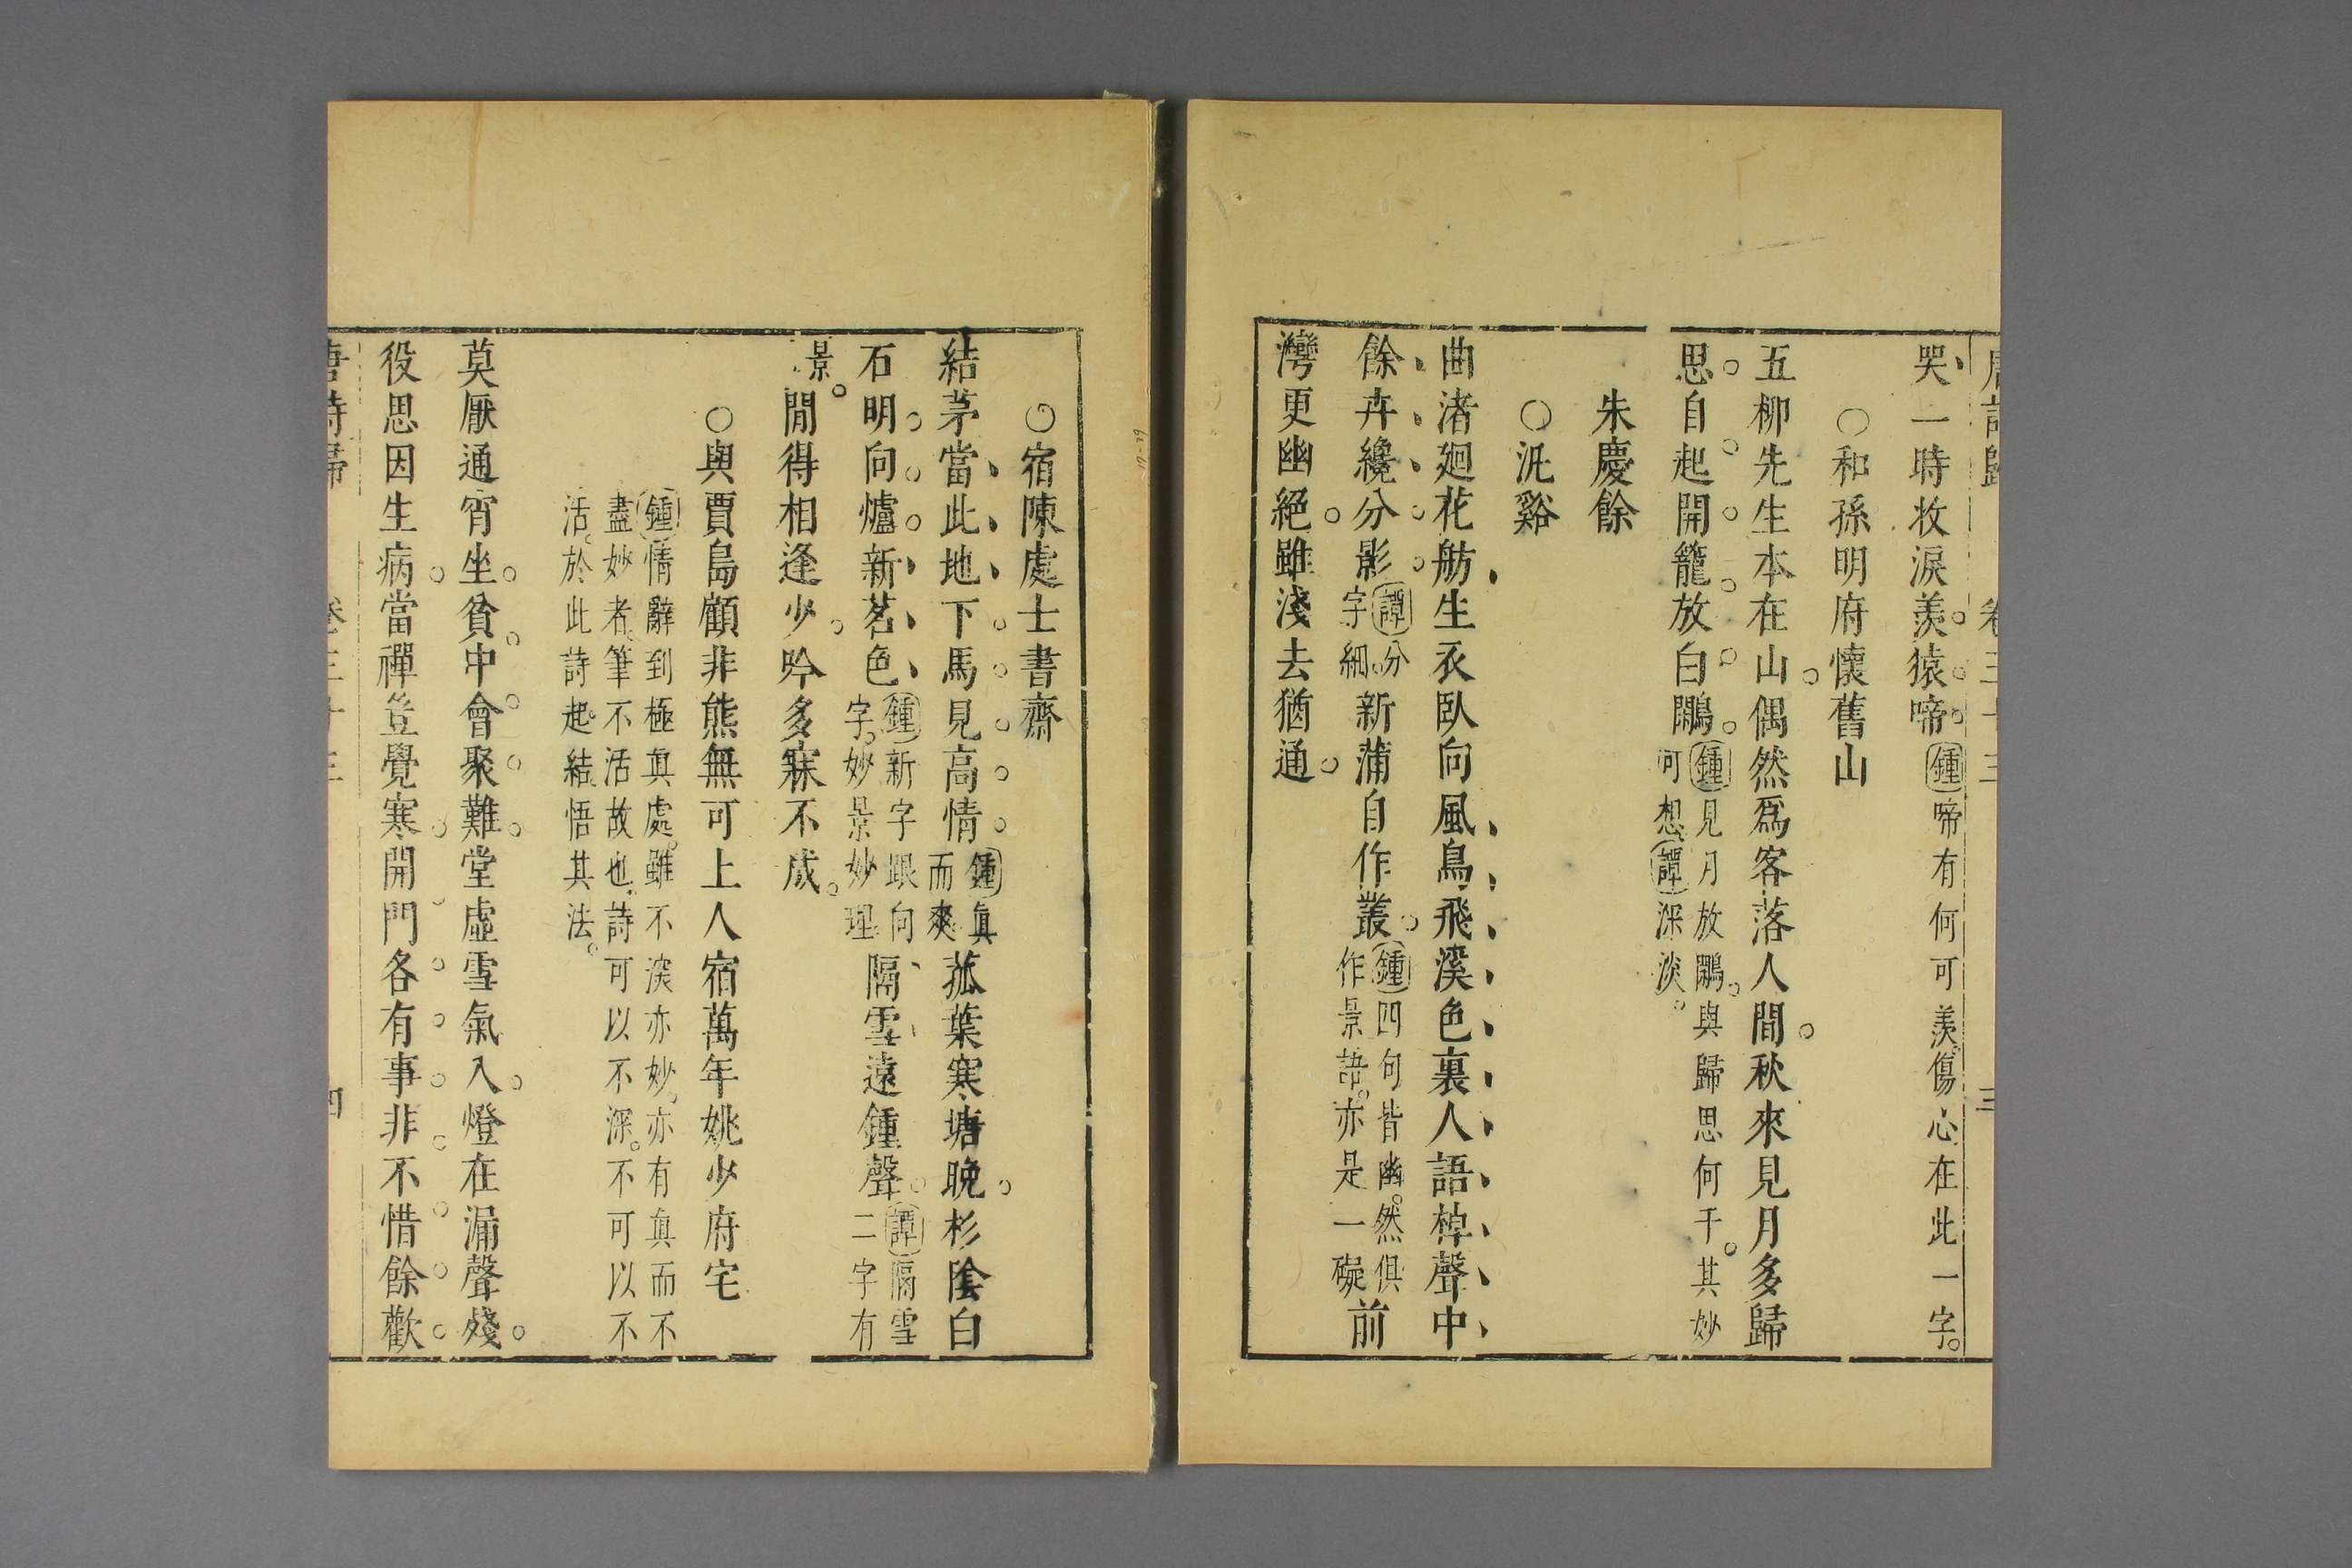 哭一時收淚羨猿啼鍾啼有何可羨傷心在此一字
○和孫明府懷舊山
五柳先生本在山偶然爲客落人間秋來見月多歸
思自起開籠放白鷴鍾見月放鷴與歸思何干其妙
可想譚深淡
朱慶餘
○泛谿
曲渚廻花舫生衣臥向風鳥飛溪色裏人語棹聲中
餘卉纔分影譚分字細新蒲自作叢鍾四句皆幽然俱作景語亦是一礙前
灣更幽絕雖淺去猶通
○宿陳處士書齋
結茅當此地下馬見高情鍾眞而爽菰葉寒塘晚杉陰白
石明向爐新茗色鍾新字跟向字妙景妙理隔雪遠鍾聲譚隔雪二字有
景閒得相逢少吟多寐不成
○與賈島顧非熊無可上人宿萬年姚少府宅
鍾情辭到極眞處雖不深亦妙亦有眞而不
盡妙者筆不活故也詩可以不深不可以不
活於此詩起結悟其法
莫厭通宵坐貧中會聚難堂虛雪氣入燈在漏聲殘
役思因生病當禪豈覺寒開門各有事非不惜餘歡
唐詩歸 卷三十三 四